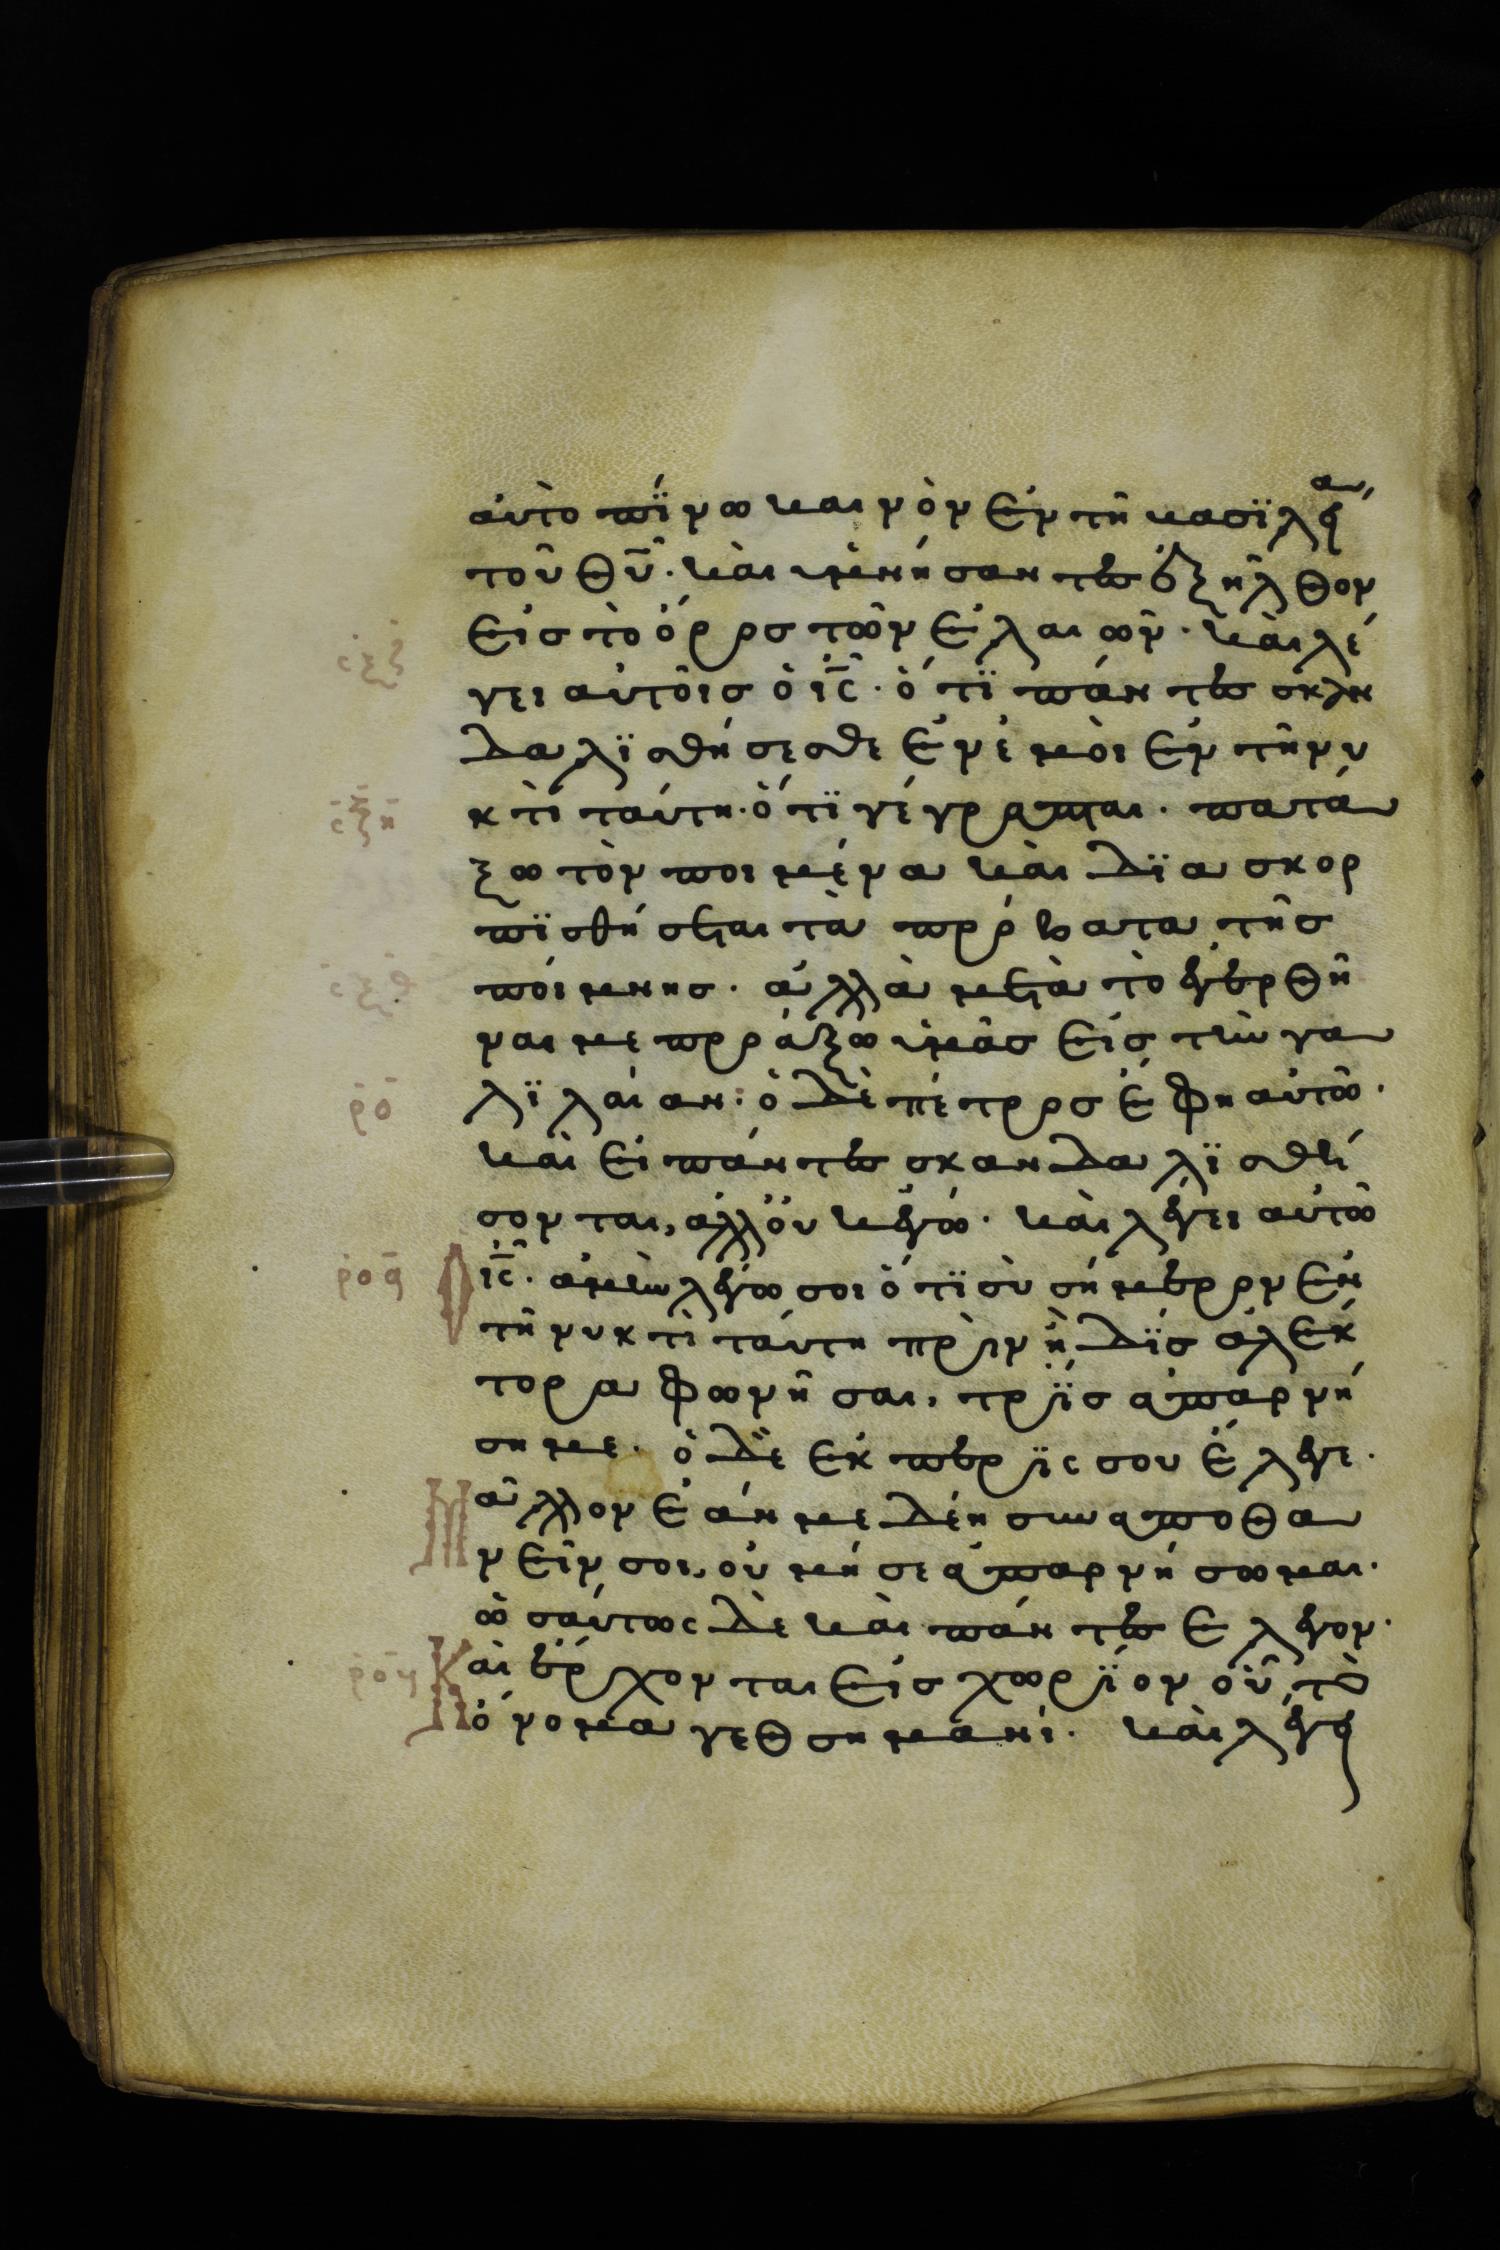 αὐτὸ πί̈νω και νὸν ἐν τῆ βασϊλεία
τοῦ θῡ̂. κὰι ὑμνήσαντες ἐξῆλθον
εἰσ τὸ ὄροσ τῶν ἐλαιῶν. κὰι λέ
γει αὐτοῖσ ὁ ις̅. ὅτϊ πάντες σκαν
δαλϊσθήσεσθε ἐν ἐμὸι ἐν τῆ νυ
κτὶ ταύτη. ὅτϊ γέγραπται. πατά
ξω τὸν ποιμένα κὰι δϊασκορ
πϊσθήσεται τὰ πρόβατα τῆσ
ποίμνησ. ἀλλὰ μετὰ τὸ ἐγερθῆ
ναι με προάξω ὑμᾶσ εἰσ τὴν γα
λϊλάιαν: ὁ δὲ πέτροσ ἔφη αὐτῶ.
κὰι εἰ πάντες σκανδαλϊσθή
σονται, ἀλλ̓ ὀυκ ἐγώ. κὰι λέγει αὐτῶ
Ὁ ις̅. ἀμὴν λέγω σοι ὅτϊ σὺ σήμερον ἐν
τῆ νυκτὶ ταύτη πρὶν ἢ δὶ̈σ ἀλέκ
τορα φωνῆσαι, τρί̈σ ἀπαρνή
ση με. ὁ δὲ ἐκ περϊςσου ἔλεγε.
Μᾶλλον ἐάν με δέη σὺν ἀποθα
νεῖν σοι, οὐ μή σε ἀπαρνήσωμαι.
ὡσαύτως δὲ κὰι πάντες ἔλεγον.
Κὰι ἔρχονται εἰσ χωρί̈ον οὗ τὸ
ὄνομα γεθσημανί. κὰι λέγει
ς̅ξζ̅
ς̅ξη̅
ς̅ξθ̅
ρο̅
ροα̅
ρογ̅